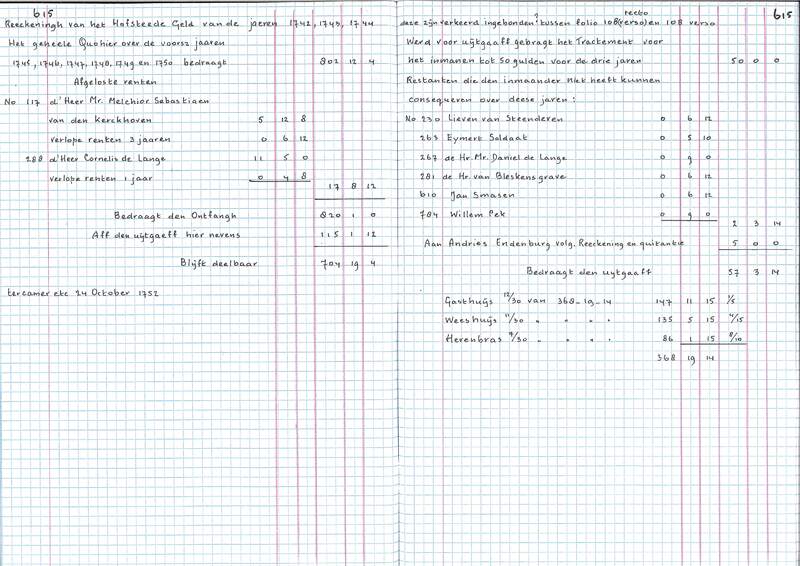 615
Reeckeningh van het Hofsteede Geld van de jaeren 1742, 1743, 1744
Het geheele Quohier over de voorsz jaaren
1745, 1746, 1747, 1748, 1749 en 1750 bedraagt 802 12 4
Afgeloste renten
No 117 d'Heer Mr. Melchior Sebastiaen
van den Kerckhoven 5 12 8
verlope renten 3 jaaren 0 6 12
288 d'Heer Cornelis de Lange 11 5 0
verlope renten 1 jaar 0 4 8
17 8 12
Bedraagt den Ontfangh 820 1 0
Aff den uijtgaeff hier nevens 115 1 12
Blijft deelbaar 704 19 4
ter camer etc 24 October 1752
615
? recto
deze zijn verkeerd ingebonden tussen folio 108 (verso) en 108 verso
Werd voor uijtgaaff gebragt het Tractement voor
het inmanen tot 50 gulden voor de drie jaren 50 0 0
Restanten die den inmaander niet heeft kunnen
consequeren over deese jaren:
No 230 Lieven van Steenderen 0 6 12
263 Eymert Soldaat 0 5 10
267 de Hr. Mr. Daniel de Lange 0 9 0
281 de Hr. van Bleskensgrave 0 6 12
610 Jan Smasen 0 6 12
784 Willem Pek 0 9 0
2 3 14
Aan Andries Endenburg volg. Reeckening en quitantie 5 0 0
Bedraagt den uytgaaff 57 3 14
Gasthuijs 12/30 van 368-19-14 147 11 15 1/5
Weeshuijs 11/30 " " " " 135 5 15 4/15
Herenbras 7/30 " " " " 86 1 15 8/10
368 19 14